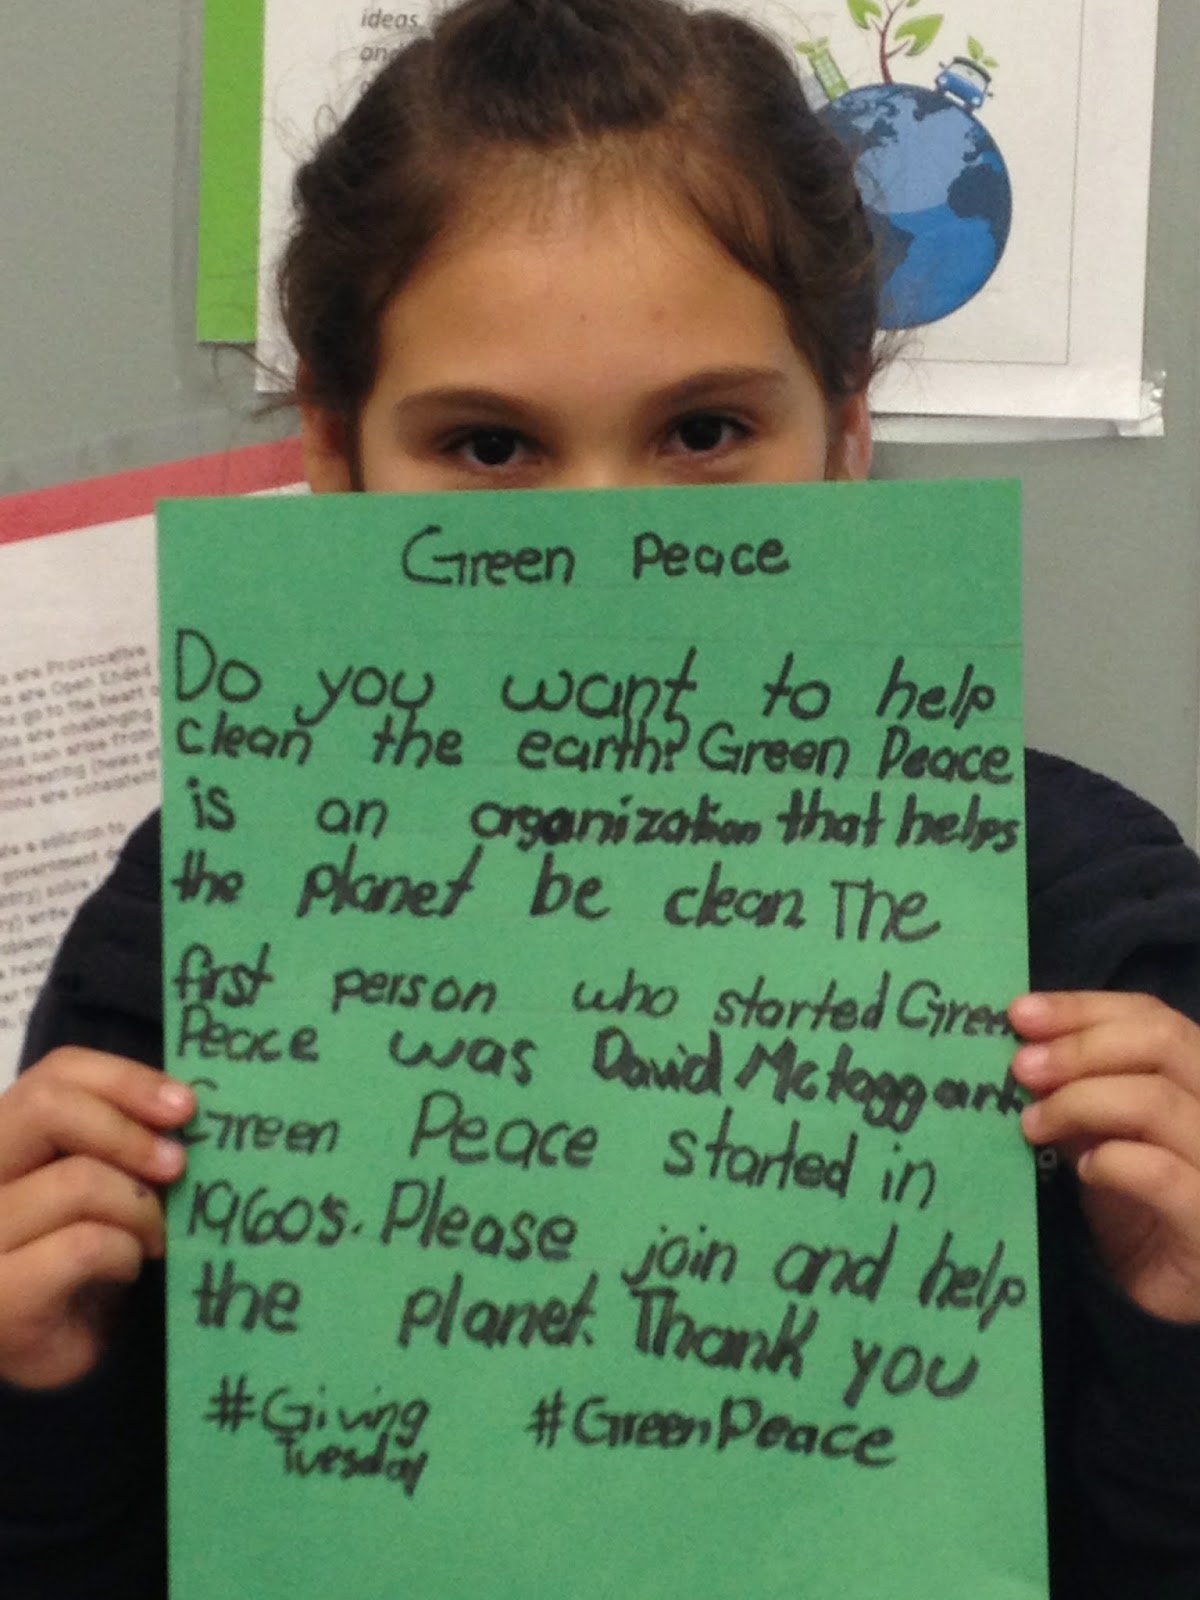 ideas.
and
Green Peace
Do you want to help
clean the earth? Green Peace
is an organization that helps
the planet be clean. The
first person who started Green
Peace was David McTaggart
Green Peace started in
1960s. Please join and help
the planet. Thank you
#Giving #GreenPeace
Tuesday
are Provocative
are Open Ended
go to the heart
are challenging
can arise from
are consistent
a solution to
government
solve
write